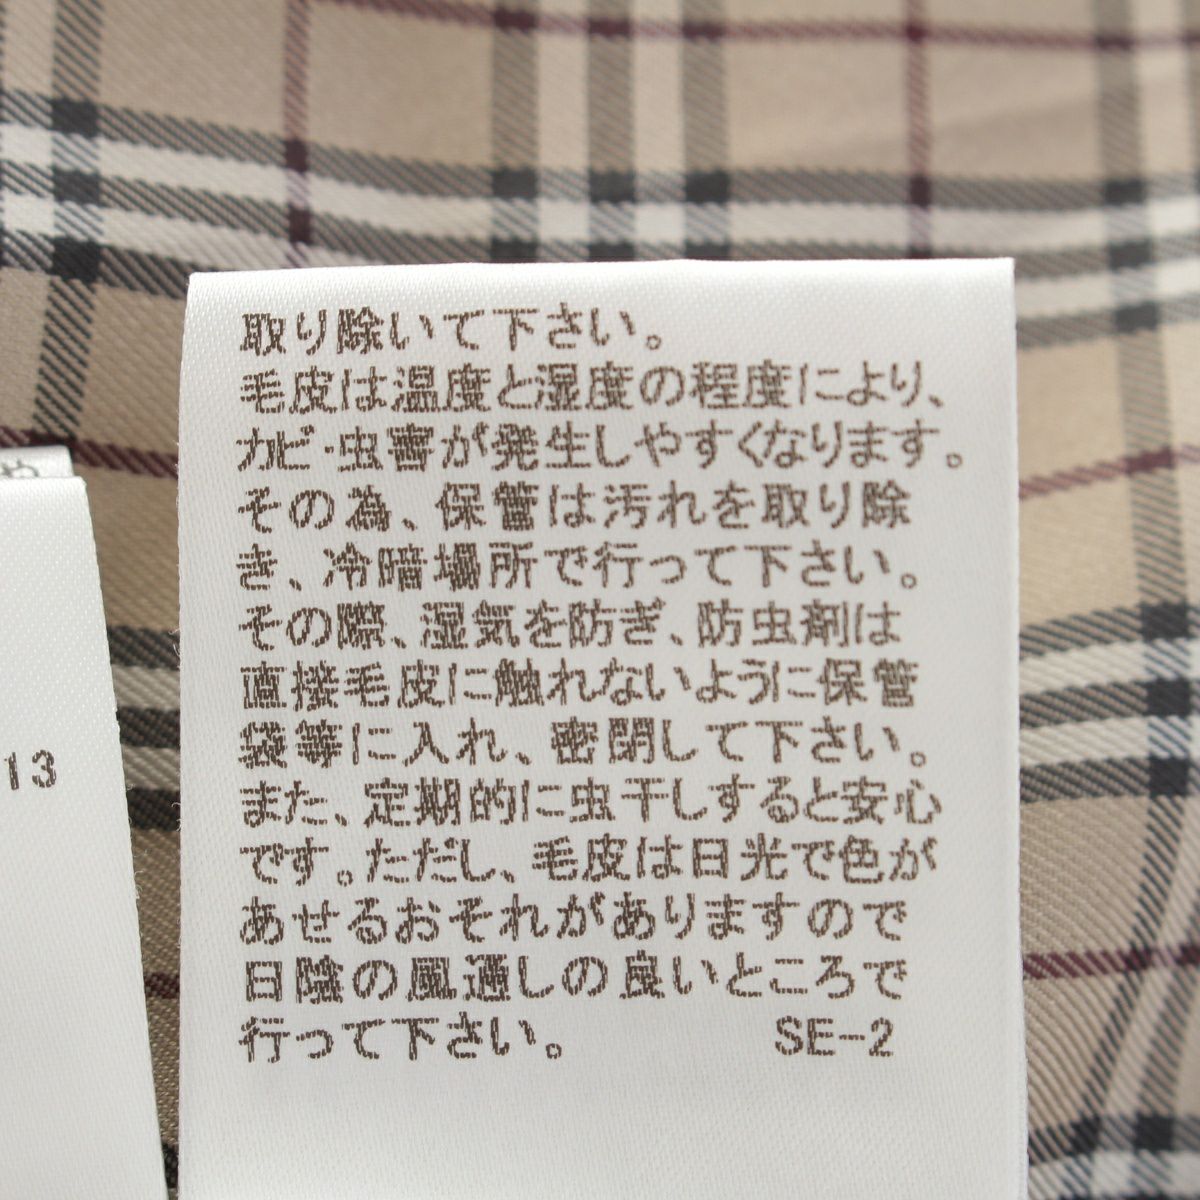 取り除いて下さい。
毛皮は温度と湿度の程度により、
カビ・虫害が発生しやすくなります。
その為、保管は汚れを取り除
き、冷暗場所で行って下さい。
その際、湿気を防ぎ、防虫剤は
直接毛皮に触れないように保管
袋等に入れ、密閉して下さい。
また、定期的に虫干しすると安心
です。ただし、毛皮は日光で色が
あせるおそれがありますので
日陰の風通しの良いところで
行って下さい。 SE-2
13